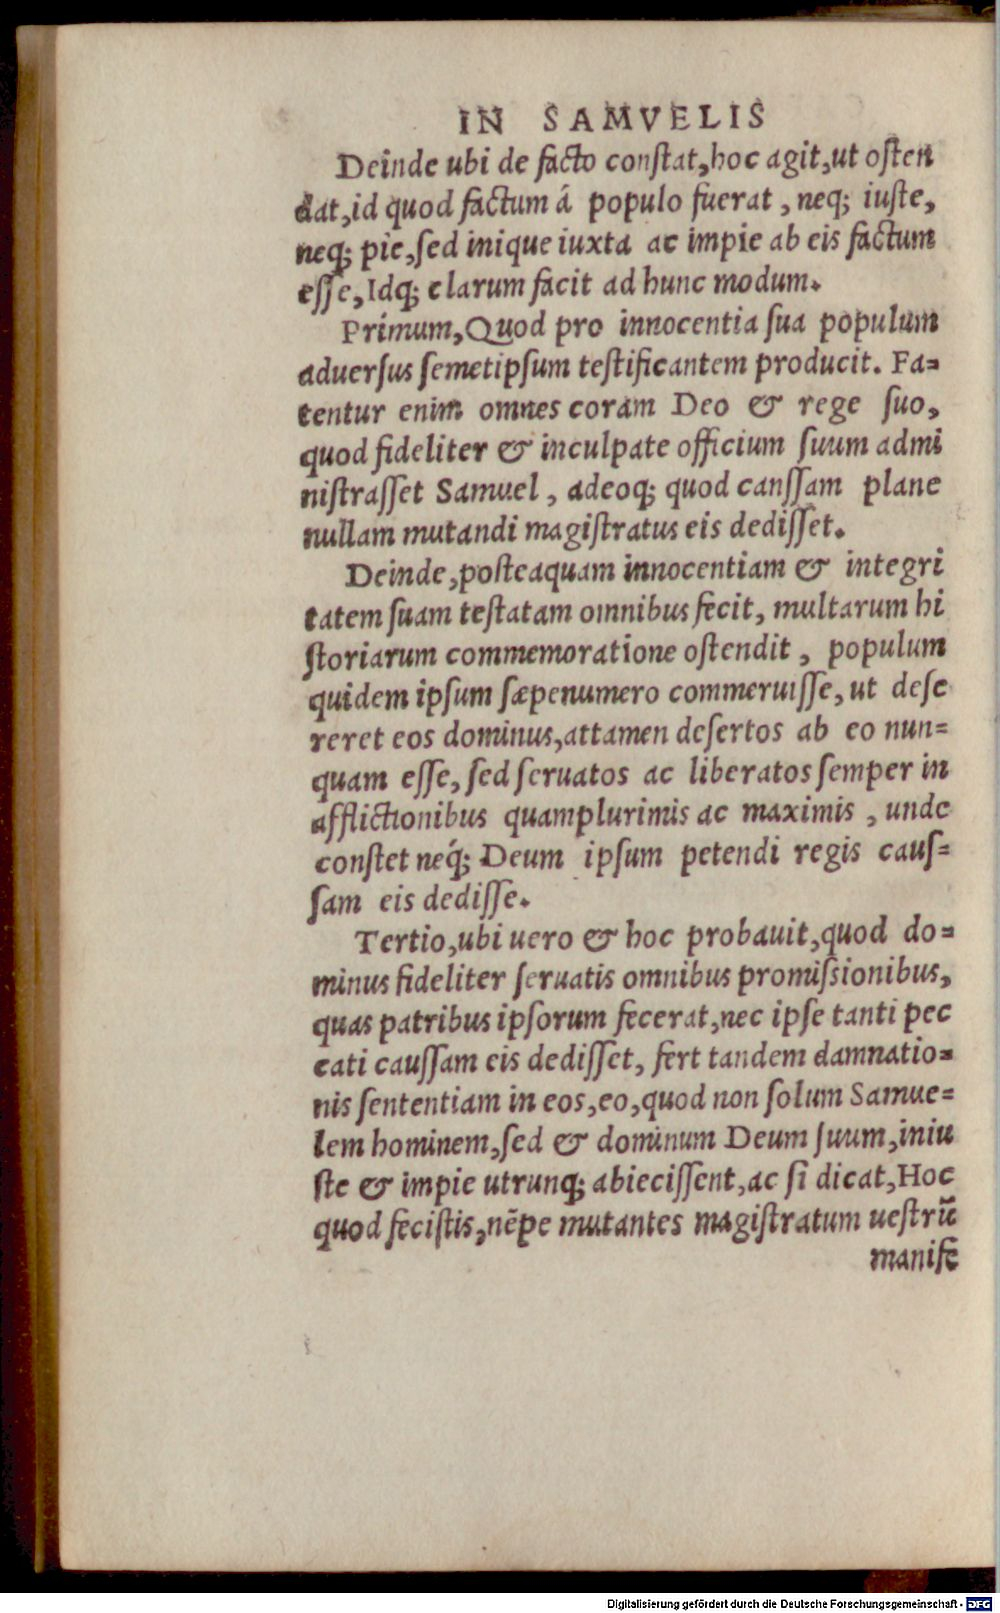 IN SAMVELIS
Deinde ubi de facto conſtat,hoc agit,ut oſten
dat,id quod factum á populo fuerat , neq; iuſte,
neq; pie,ſed inique iuxta ac impie ab eis factum
eſſe,Idq; clarum facit ad hunc modum.
Prímum,Quod pro innocentia ſua populum
aduerſus ſemetipſum teſtificantem producit. Fa=
tentur enim omnes coram Deo & rege ſuo,
quod fideliter & inculpate officium ſuum admi
niſtraſſet Samuel , adeoq; quod canſſam plane
nullam mutandi magiſtratus eis dediſſet.
Deinde,poſteaquam innocentiam & integri
tatem ſuam teſtatam omnibus fecit, multarum hi
ſtoriarum commemoratione oſtendit , populum
quidem ipſum ſæpenumero commeruiſſe,ut deſe
reret eos dominus,attamen deſertos ab eo nun=
quam eſſe, ſed ſeruatos ac liberatos ſemper in
afflictionibus quamplurimis ac maximis , unde
conſtet neq́; Deum ipſum petendi regis cauſ=
ſam eis dediſſe.
Tertio,ubi uero & hoc probauit,quod do=
minus fideliter ſeruatis omnibus promiſsionibus,
quas patribus ipſorum fecerat,nec ipſe tanti pec
cati cauſſam eis dediſſet, fert tandem damnatio=
nis ſententiam in eos,eo,quod non ſolum Samue=
lem hominem,ſed & dominum Deum ſuum,iniu
ſte & impie utrunq; abieciſſent,ac ſi dicat,Hoc
quod feciſtis,nēpe mutantes magiſtratum ueſtrū
manife
Digitalisierung gefördert durch die Deutsche Forschungsgemeinschaft - DFG